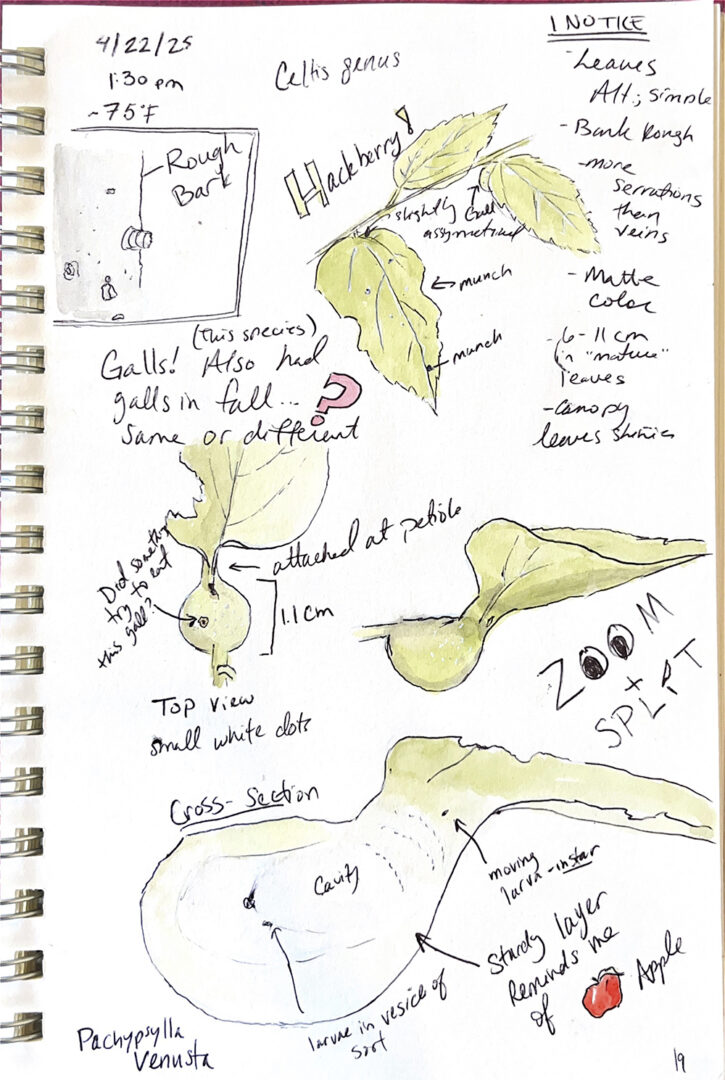 4/22/25
1:30 pm
~75°F
Celtis genus
Rough
Bark
Hackberry!
slightly
assymetrical
Gall
munch
munch
I NOTICE
- Leaves
Alt; simple
- Bark Rough
- more
serrations
than
veins
- Matte
color
- 6-11 cm
in "mature"
leaves
- Canopy
leaves shinier
(this species)
Galls! Also had
galls in fall... ?
same or different
attached at petiole
Did something
try to eat
this gall?
1.1 cm
Top view
small white dots
ZOOM
+
SPLIT
Cross-Section
Cavity
moving
larva - instar
Sturdy layer
Reminds me
of Apple
larvae in vesice of
sort
Pachypsylla
Venusta
19